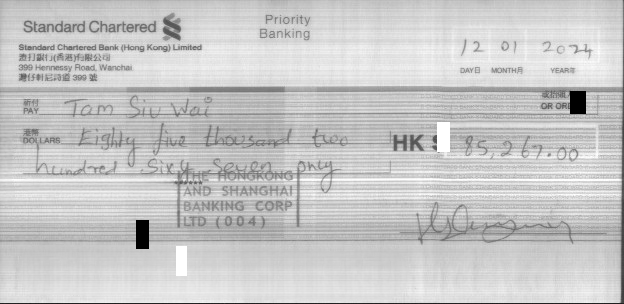 Standard Chartered
Priority
Banking
Standard Chartered Bank (Hong Kong) Limited
渣打銀行(香港)有限公司
399 Hennessy Road, Wanchai
灣仔軒尼詩道 399 號
12 01 2024
DAY日 MONTH月 YEAR年
祈付
PAY Tam Siu Wai
或持票人
OR OR
港幣
DOLLARS Eighty five thousand two
hundred Sixty Seven only
HK $ 85,267.00
THE HONGKONG
AND SHANGHAI
BANKING CORP
LTD (004)